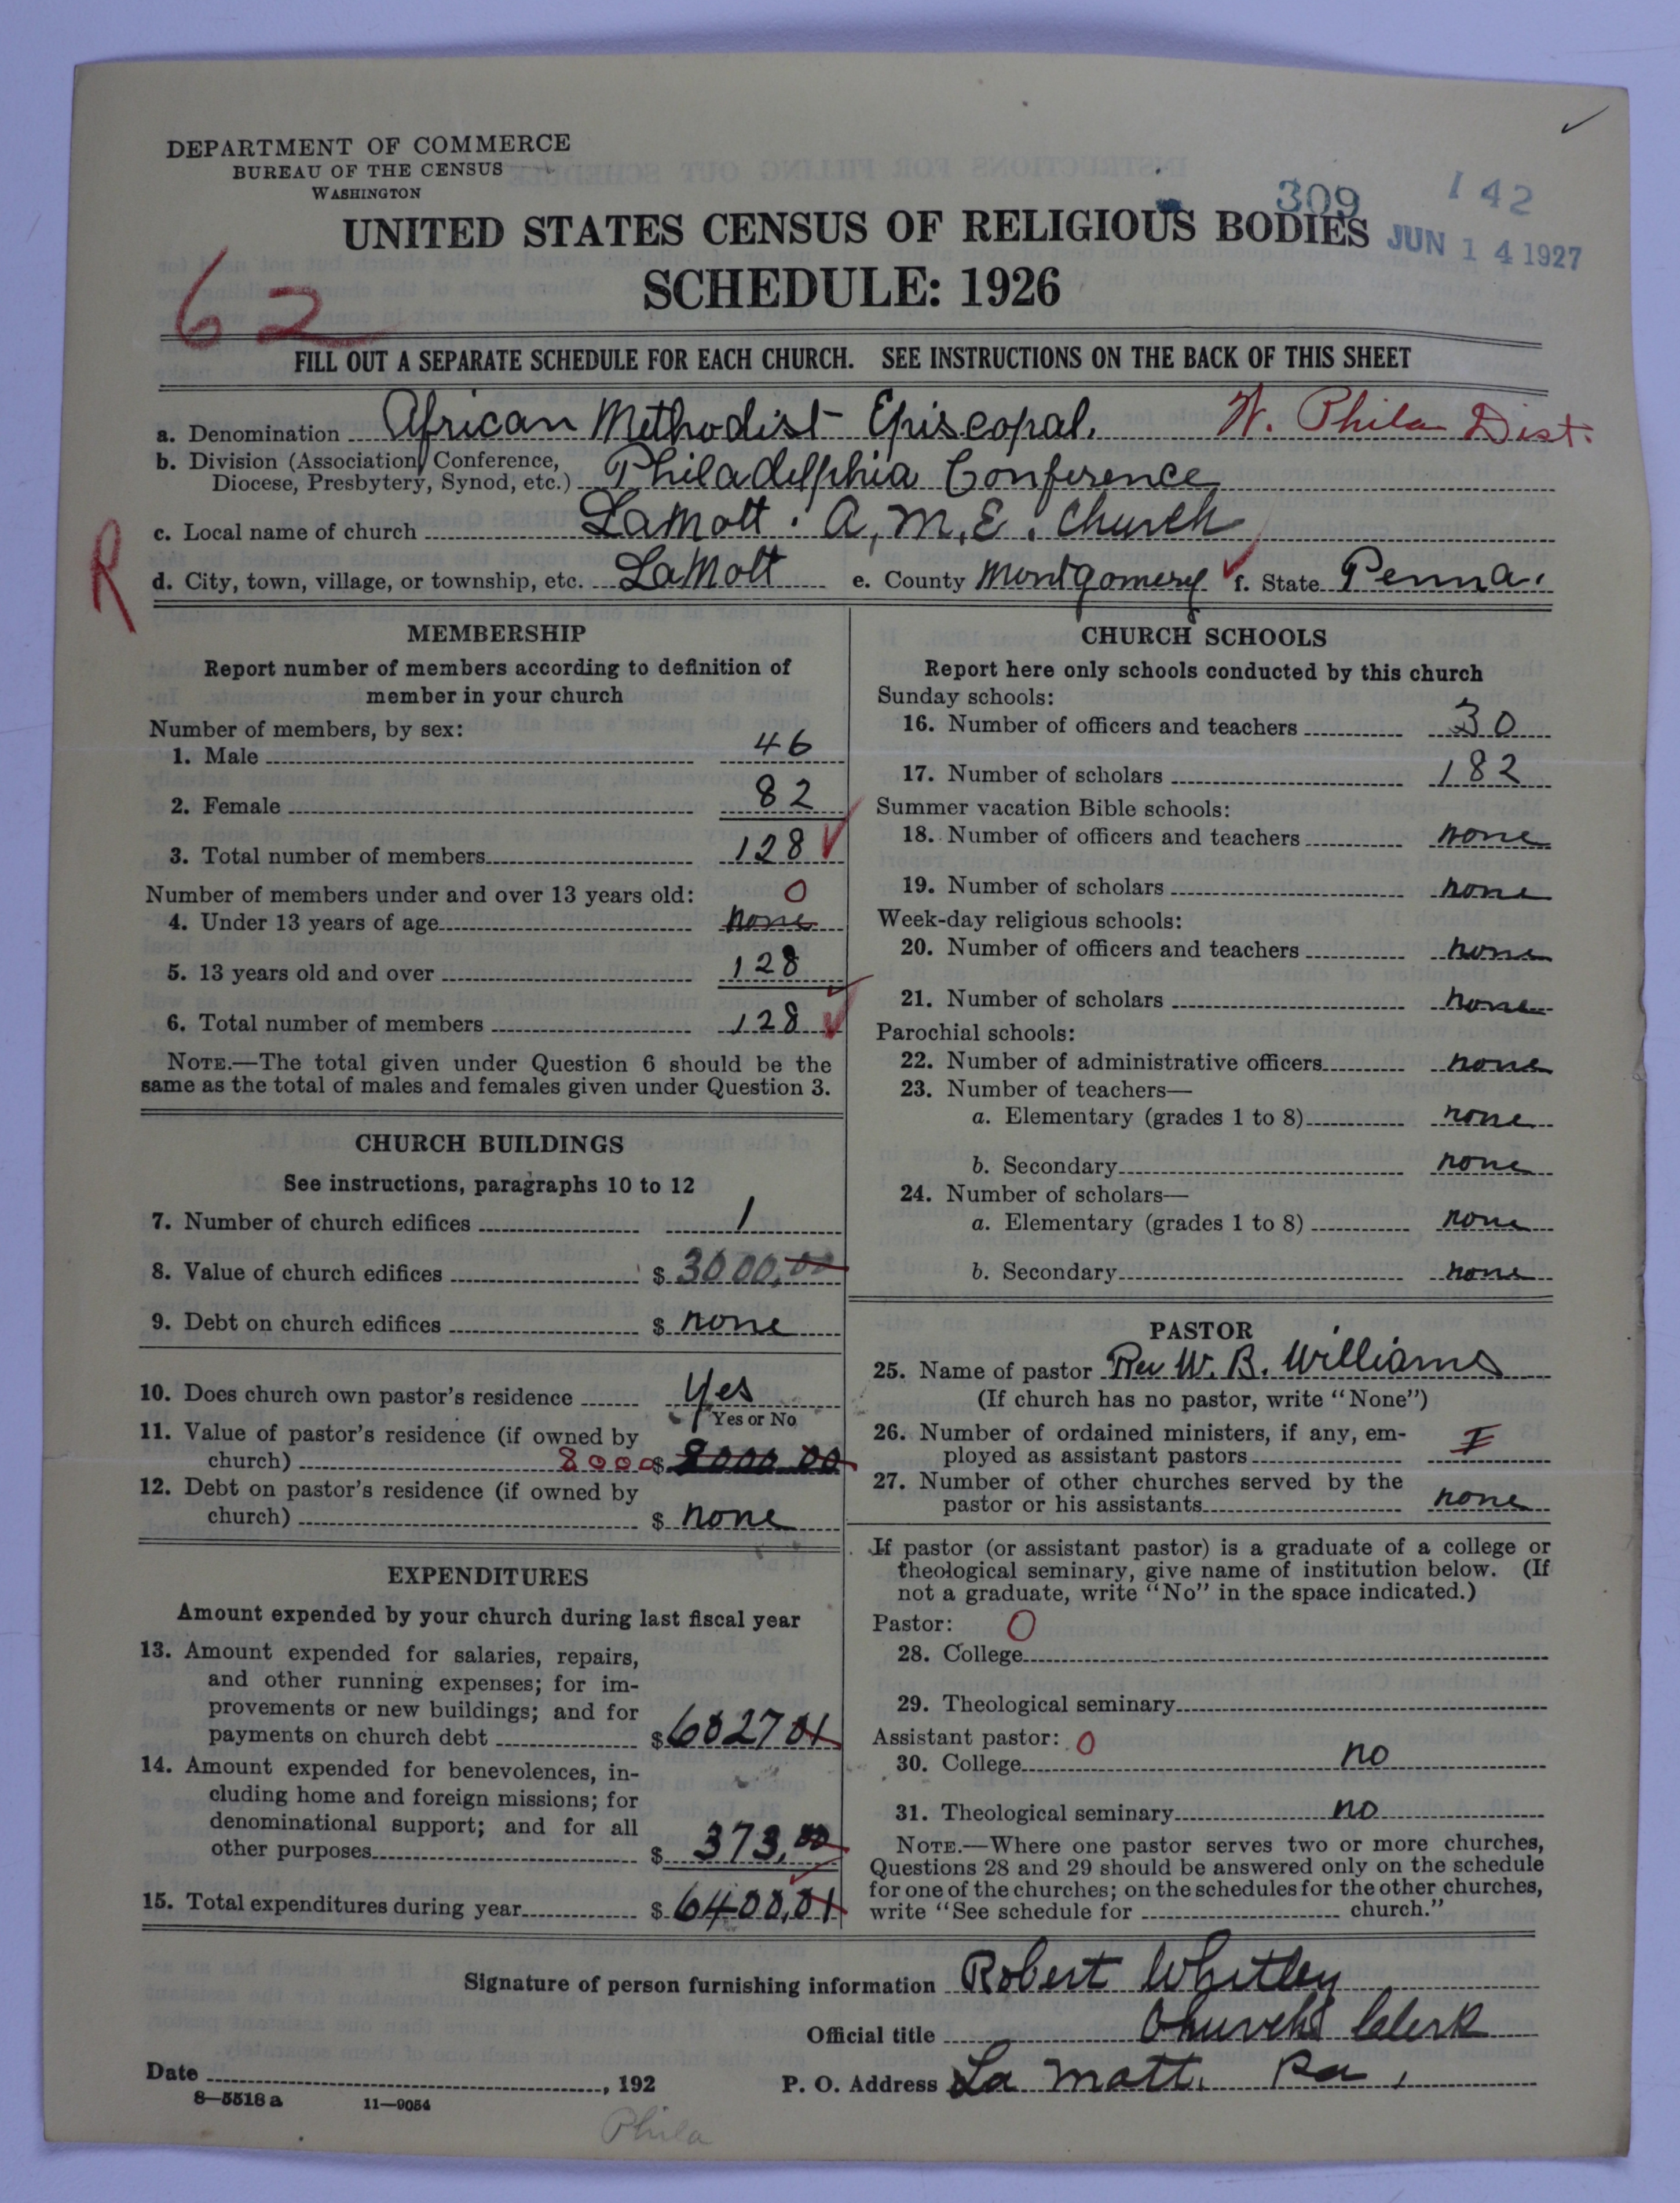 DEPARTMENT OF COMMERCE
BUREAU OF THE CENSUS
WASHINGTON
309
142
JUN 14 1927
UNITED STATES CENSUS OF RELIGIOUS BODIES
SCHEDULE: 1926
62
FILL OUT A SEPARATE SCHEDULE FOR EACH CHURCH. SEE INSTRUCTIONS ON THE BACK OF THIS SHEET
a. Denomination African Methodist Episcopal. W. Phila Dist.
b. Division (Association, Conference,
Diocese, Presbytery, Synod, etc.) Philadelphia Conference
c. Local name of church LaMott. A, M, E. Church
R
d. City, town, village, or township, etc. LaMott e. County Montgomery f. State Penna.
MEMBERSHIP
Report number of members according to definition of
member in your church
Number of members, by sex:
1. Male 46
2. Female 82
3. Total number of members 128
Number of members under and over 13 years old: 0
4. Under 13 years of age none
5. 13 years old and over 128
6. Total number of members 128
NOTE.—The total given under Question 6 should be the
same as the total of males and females given under Question 3.
CHURCH BUILDINGS
See instructions, paragraphs 10 to 12
7. Number of church edifices 1
8. Value of church edifices $ 3000.00
9. Debt on church edifices $ none
10. Does church own pastor's residence Yes
Yes or No
11. Value of pastor's residence (if owned by
church) 8000 $ 8000 00
12. Debt on pastor's residence (if owned by
church) $ none
EXPENDITURES
Amount expended by your church during last fiscal year
13. Amount expended for salaries, repairs,
and other running expenses; for im-
provements or new buildings; and for
payments on church debt $ 6027 01
14. Amount expended for benevolences, in-
cluding home and foreign missions; for
denominational support; and for all
other purposes $ 373.00
15. Total expenditures during year $ 6400.01
CHURCH SCHOOLS
Report here only schools conducted by this church
Sunday schools:
16. Number of officers and teachers 30
17. Number of scholars 182
Summer vacation Bible schools:
18. Number of officers and teachers none
19. Number of scholars none
Week-day religious schools:
20. Number of officers and teachers none
21. Number of scholars none
Parochial schools:
22. Number of administrative officers none
23. Number of teachers—
a. Elementary (grades 1 to 8) none
b. Secondary none
24. Number of scholars—
a. Elementary (grades 1 to 8) none
b. Secondary none
PASTOR
25. Name of pastor Rev W. B. Williams
(If church has no pastor, write "None")
26. Number of ordained ministers, if any, em-
ployed as assistant pastors I
27. Number of other churches served by the
pastor or his assistants none
If pastor (or assistant pastor) is a graduate of a college or
theological seminary, give name of institution below. (If
not a graduate, write "No" in the space indicated.)
Pastor: 0
28. College
29. Theological seminary
Assistant pastor: 0
30. College no
31. Theological seminary no
NOTE.—Where one pastor serves two or more churches,
Questions 28 and 29 should be answered only on the schedule
for one of the churches; on the schedules for the other churches,
write "See schedule for church."
Signature of person furnishing information Robert Whitley
Official title Church Clerk
Date , 192
P. O. Address La Mott. Pa.
8—5518 a 11—9054
Phila